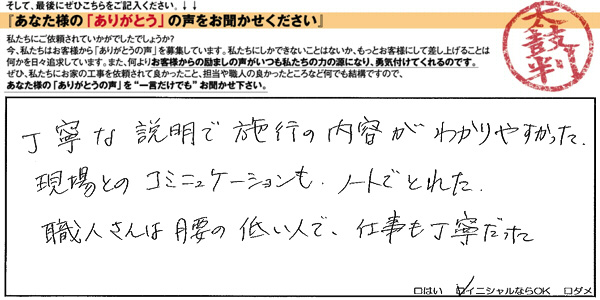 そして、最後にぜひこちらをご記入ください。↓↓
『あなた様の「ありがとう」の声をお聞かせください』
私たちにご依頼されていかがでしたでしょうか?
今、私たちはお客様から「ありがとうの声」を募集しています。私たちにしかできないことはないか、もっとお客様にして差し上げることは
何かを日々追求しています。また、何よりお客様からの励ましの声がいつも私たちの力の源になり、勇気付けてくれるのです。
ぜひ、私たちにお家の工事を依頼されて良かったこと、担当や職人の良かったところなど何でも結構ですので、
あなた様の「ありがとうの声」を“一言だけでも”お聞かせ下さい。
太鼓判
丁寧な説明で施行の内容がわかりやすかった。
現場とのコミニュケーションも、ノートでとれた。
職人さんは腰の低い人で、仕事も丁寧だった
□はい ☑イニシャルならOK □ダメ